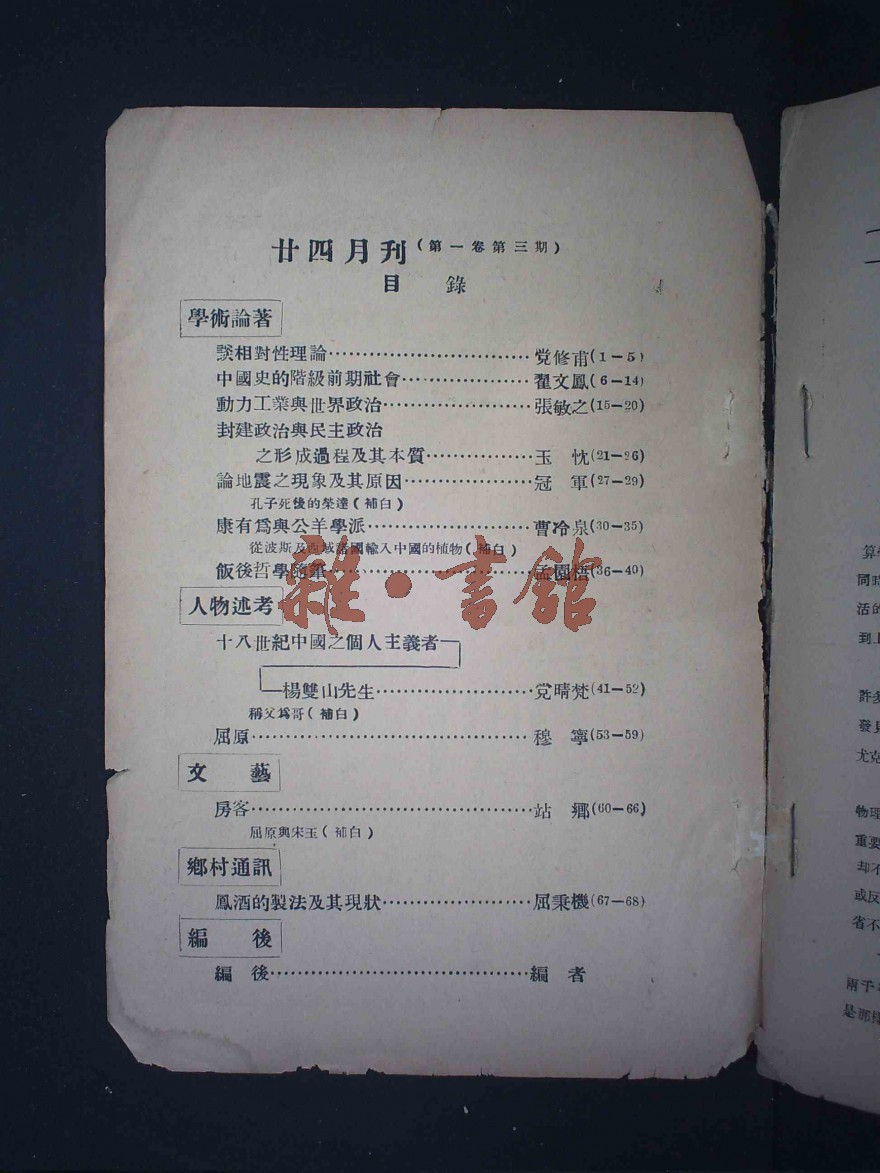 廿四月刊(第一卷第三期)
目 錄
學術論著
談相對性理論……………………………党修甫(1—5)
中國史的階級前期社會………………翟文鳳(6—14)
動力工業與世界政治…………………張敏之(15—20)
封建政治與民主政治
之形成過程及其本質……………玉 忱(21—26)
論地震之現象及其原因………………冠 軍(27—29)
孔子死後的榮達(補白)
康有爲與公羊學派……………………曹冷泉(30—35)
從波斯及西域諸國輸入中國的植物(補白)
飯後哲學隨筆…………………………孟園梧(36—40)
雜·書館
人物述考
十八世紀中國之個人主義者—
—楊雙山先生……………………党晴梵(41—52)
稱父爲哥(補白)
屈原……………………………………穆 寧(53—59)
文 藝
房客……………………………………站 鄉(60—66)
屈原與宋玉(補白)
鄉村通訊
鳳酒的製法及其現狀…………………屈秉機(67—68)
編 後
編 後…………………………………編 者
算
同時
活的
到
許多
發見
尤克
物理
重要
却不
或反
省不
兩千
是那樣